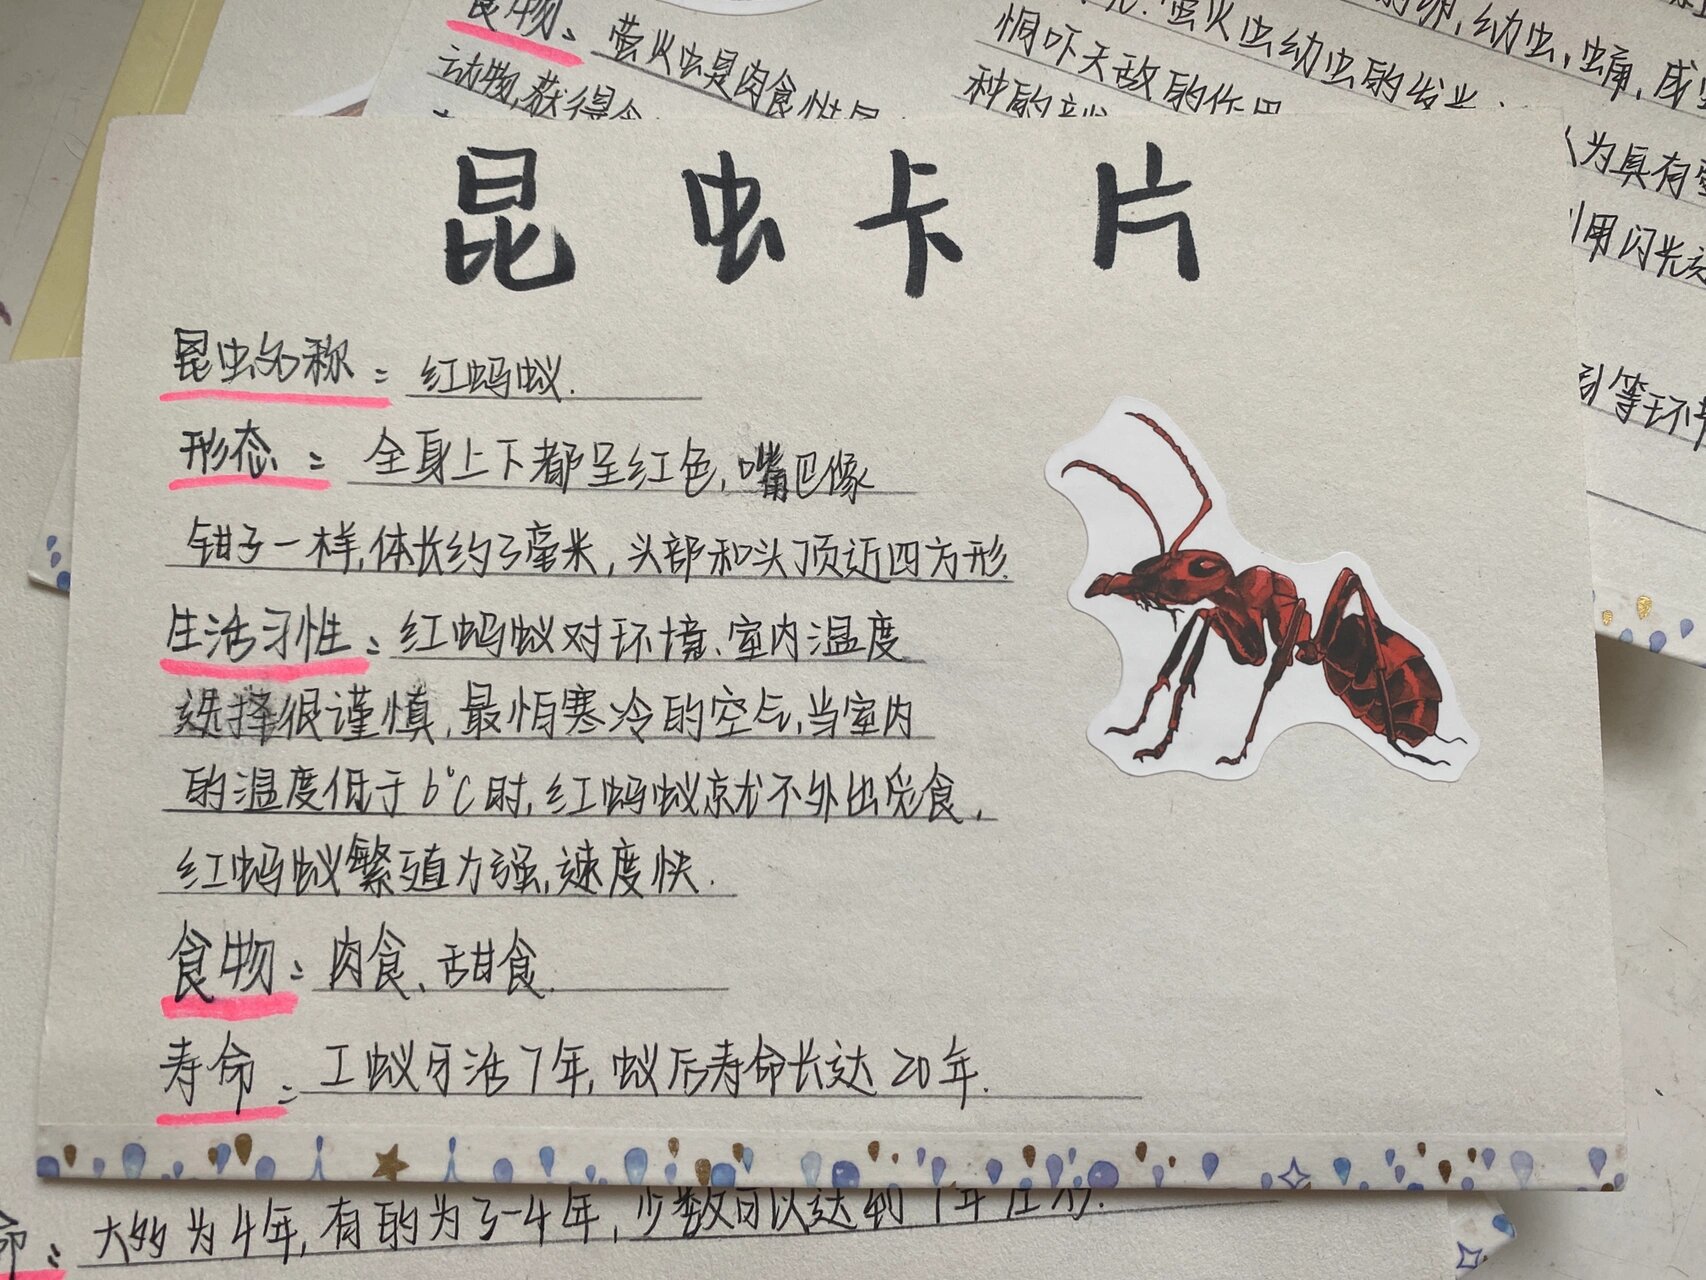 食物：萤火虫是肉食性昆
动物,获得食
萤火虫幼虫的发光
恫吓天敌的作用
种的
卵,幼虫,蛹,成虫
为具有
利用闪光
引等环节
昆虫卡片
昆虫名称：红蚂蚁.
形态：全身上下都呈红色,嘴巴像
钳子一样,体长约3毫米,头部和头顶近四方形.
生活习性：红蚂蚁对环境、室内温度
选择很谨慎,最怕寒冷的空气,当室内
的温度低于6℃时,红蚂蚁就不外出觅食,
红蚂蚁繁殖力强,速度快.
食物：肉食、甜食.
寿命：工蚁可活7年,蚁后寿命长达20年.
命：大多为4年,有的为3-4年,少数可以达到7年左右.